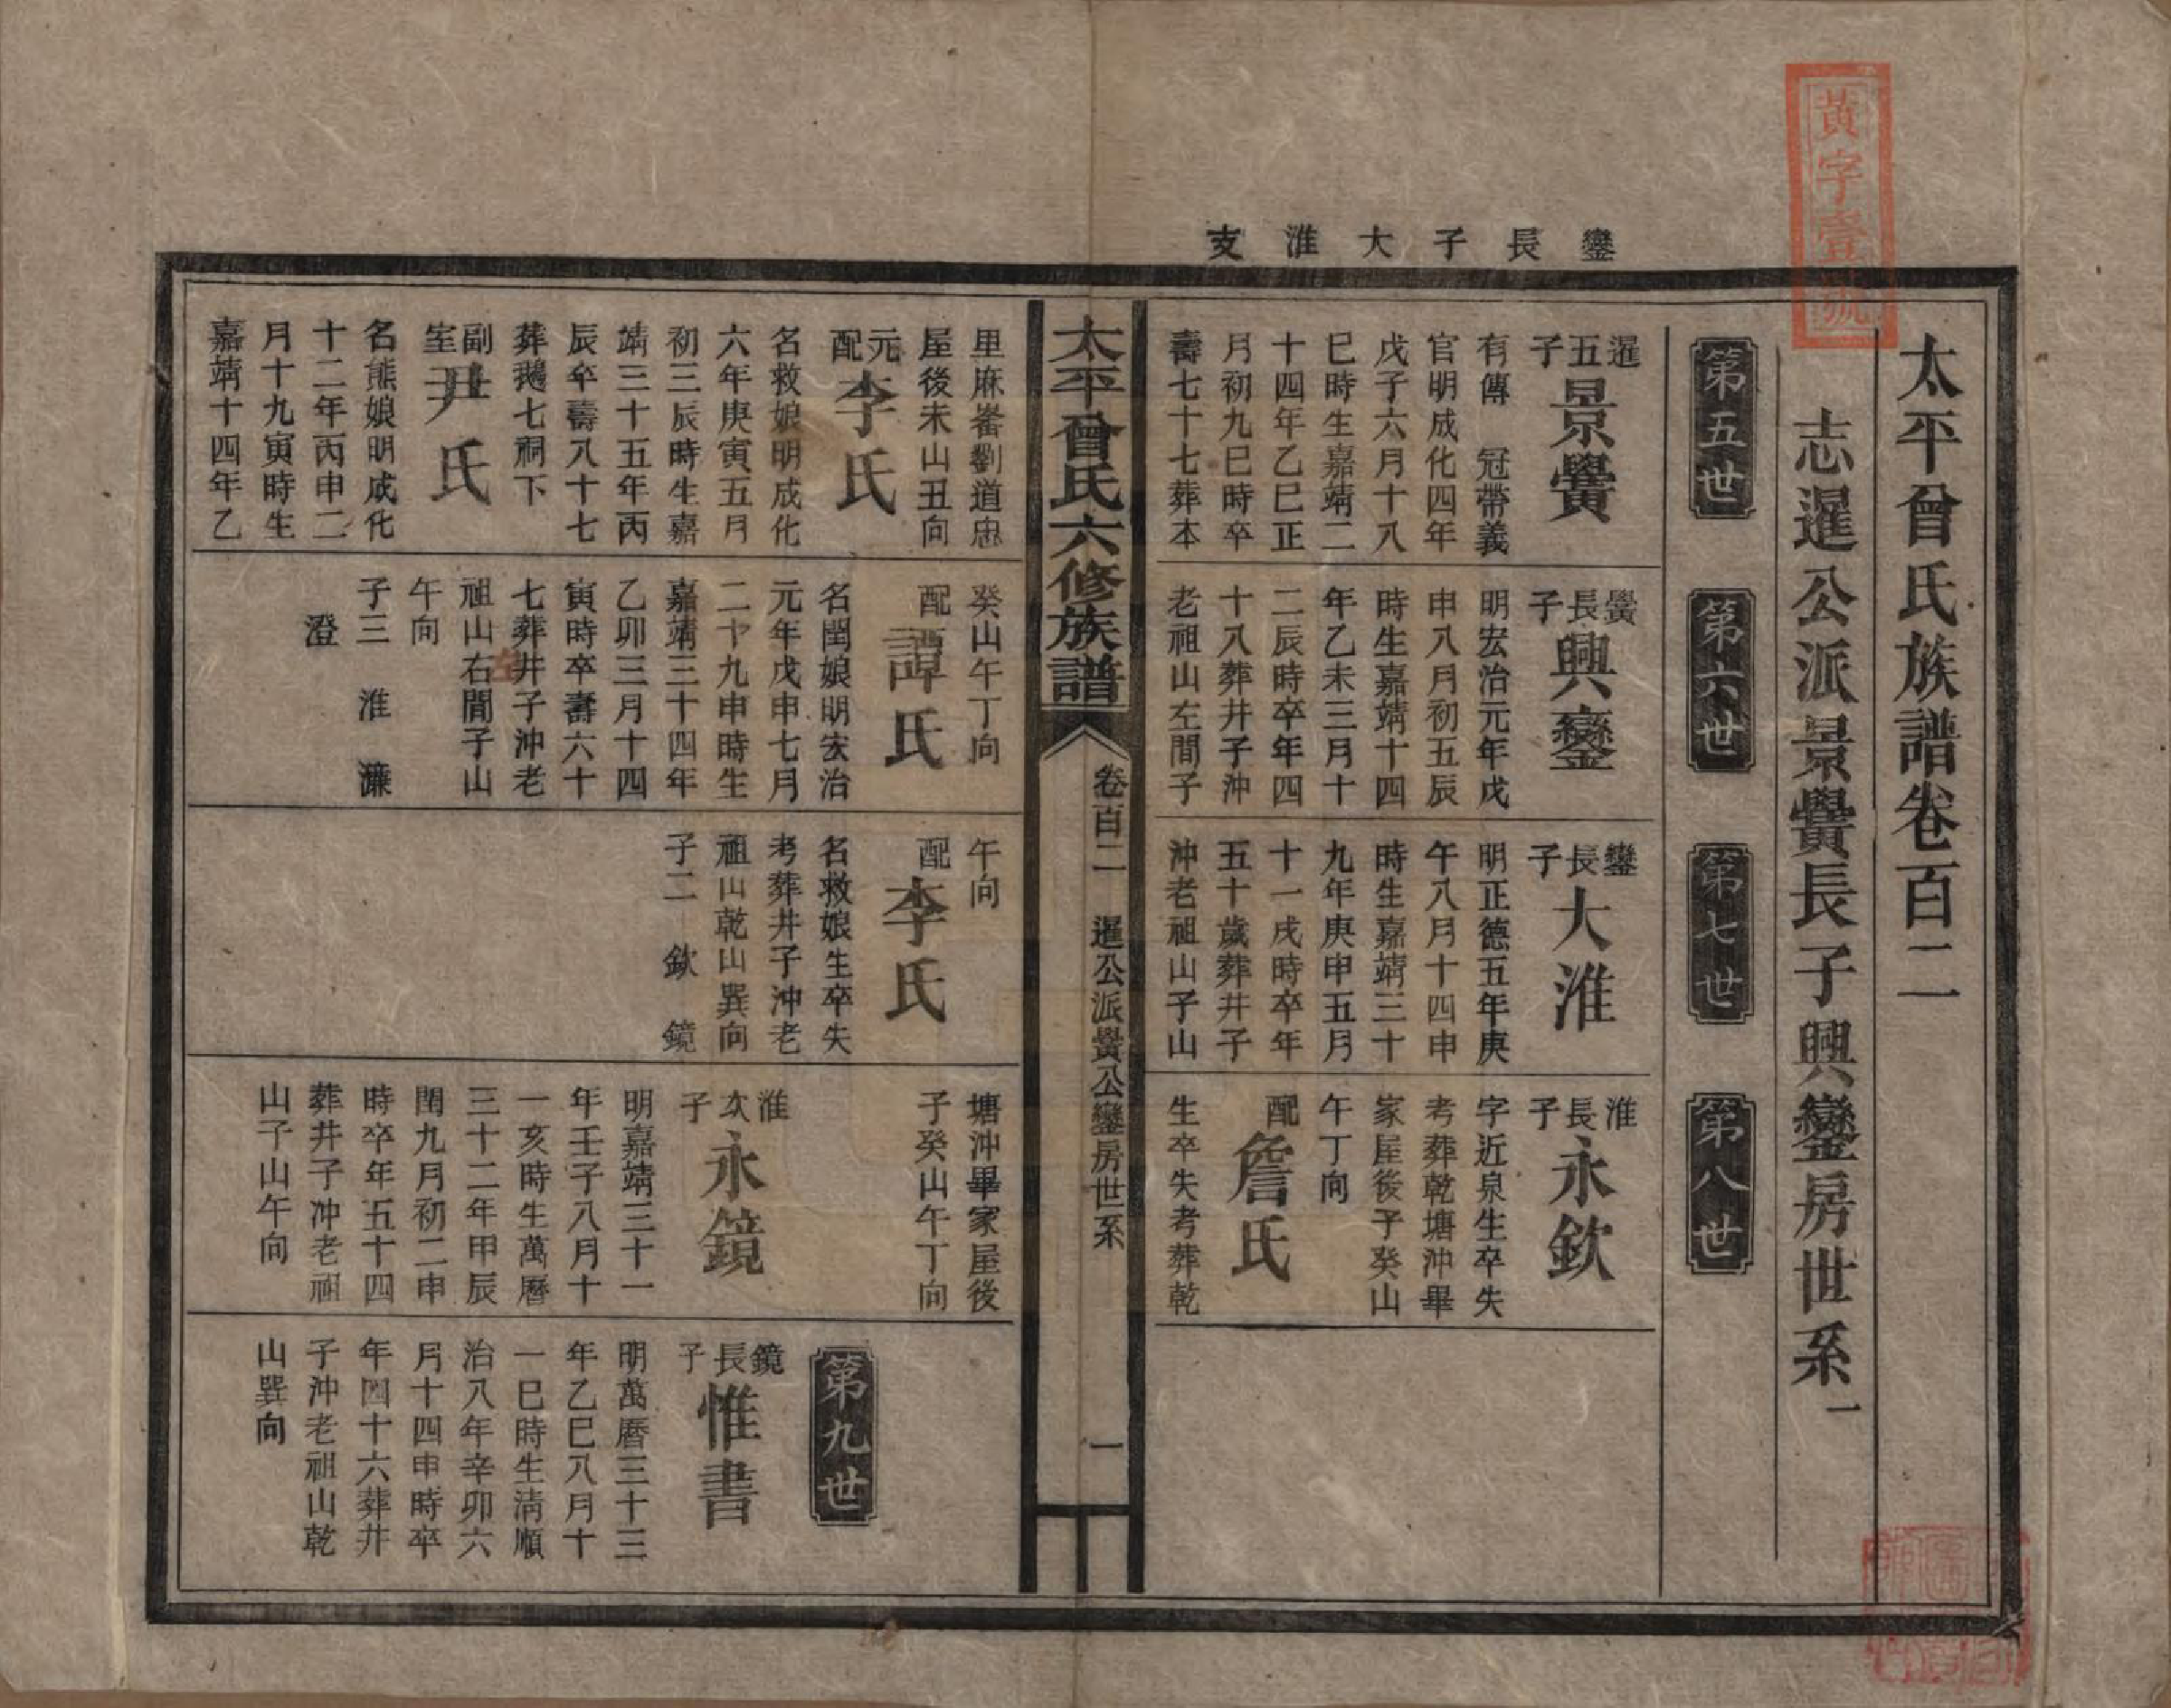 黃字壹號
太平曾氏族譜卷百二
志暹公派景黌長子興鑾房世系一
第五世
第六世
第七世
第八世
鑾長子大淮支
暹五子
景黌
有傳 冠帶義
官明成化四年
戊子六月十八
巳時生嘉靖二
十四年乙巳正
月初九巳時卒
壽七十七葬本
黌長子
興鑾
明宏治元年戊
申八月初五辰
時生嘉靖十四
年乙未三月十
二辰時卒年四
十八葬井子沖
老祖山左間子
鑾長子
大淮
明正德五年庚
午八月十四申
時生嘉靖三十
九年庚申五月
十一戌時卒年
五十歲葬井子
沖老祖山子山
淮長子
永欽
字近泉生卒失
考葬乾塘沖畢
家屋後子癸山
午丁向
配
詹氏
生卒失考葬乾
太平曾氏六修族譜
卷百二 暹公派黌公鑾房世系
一
里麻峯劉道忠
屋後未山丑向
元配
李氏
名救娘明成化
六年庚寅五月
初三辰時生嘉
靖三十五年丙
辰卒壽八十七
葬鵝七祠下
副室
尹氏
名熊娘明成化
十二年丙申二
月十九寅時生
嘉靖十四年乙
癸山午丁向
配
譚氏
名閨娘明宏治
元年戊申七月
二十九申時生
嘉靖三十四年
乙卯三月十四
寅時卒壽六十
七葬井子沖老
祖山右間子山
午向
子三 淮 濂
澄
午向
配
李氏
名救娘生卒失
考葬井子沖老
祖山乾山巽向
子二 欽 鏡
塘沖畢家屋後
子癸山午丁向
淮次子
永鏡
明嘉靖三十一
年壬子八月十
一亥時生萬曆
三十二年甲辰
閏九月初二申
時卒年五十四
葬井子沖老祖
山子山午向
第九世
鏡長子
惟書
明萬曆三十三
年乙巳八月十
一巳時生淸順
治八年辛卯六
月十四申時卒
年四十六葬井
子沖老祖山乾
山巽向